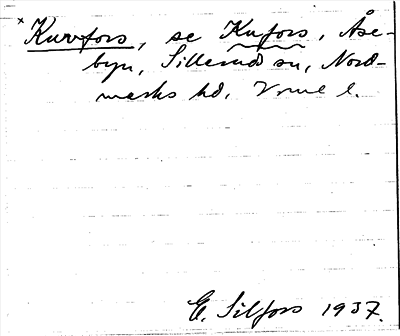 × Kurvfors, se Kufors, Åse-
byn, Sillerud sn, Nord-
marks hd, Vrml l.
E. Silfors 1937.